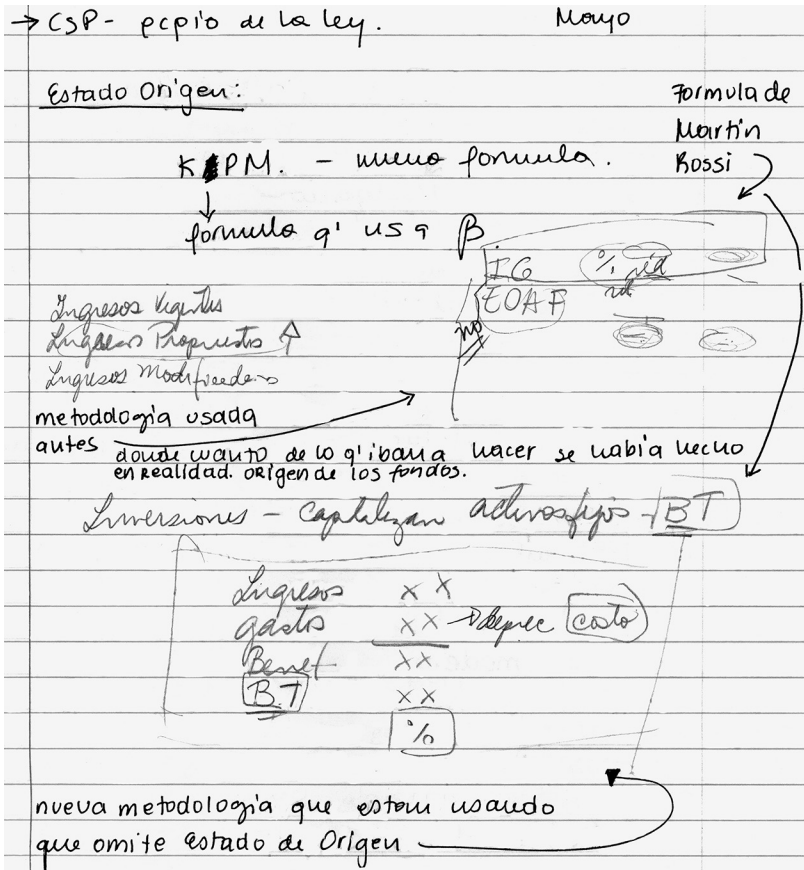 → CSP - pcpio de la ley. Mayo
Estado Origen:
Formula de
Martin
Rossi
K PM. - nueva formula.
formula q' usa β
IG % rd
Ingresos Vigentes
EOAF
Ingresos Propuestos ↑
no
Ingresos Modificados
metodologia usada
antes donde cuanto de lo q' iban a hacer se habia hecho
en Realidad. ORigen de los fondos.
Inversiones - capitalizan activos fijos - BT
Ingresos X X
gastos XX → deprec costo
Benef XX
B.T XX
%
nueva metodologia que estan usando
que omite Estado de Origen